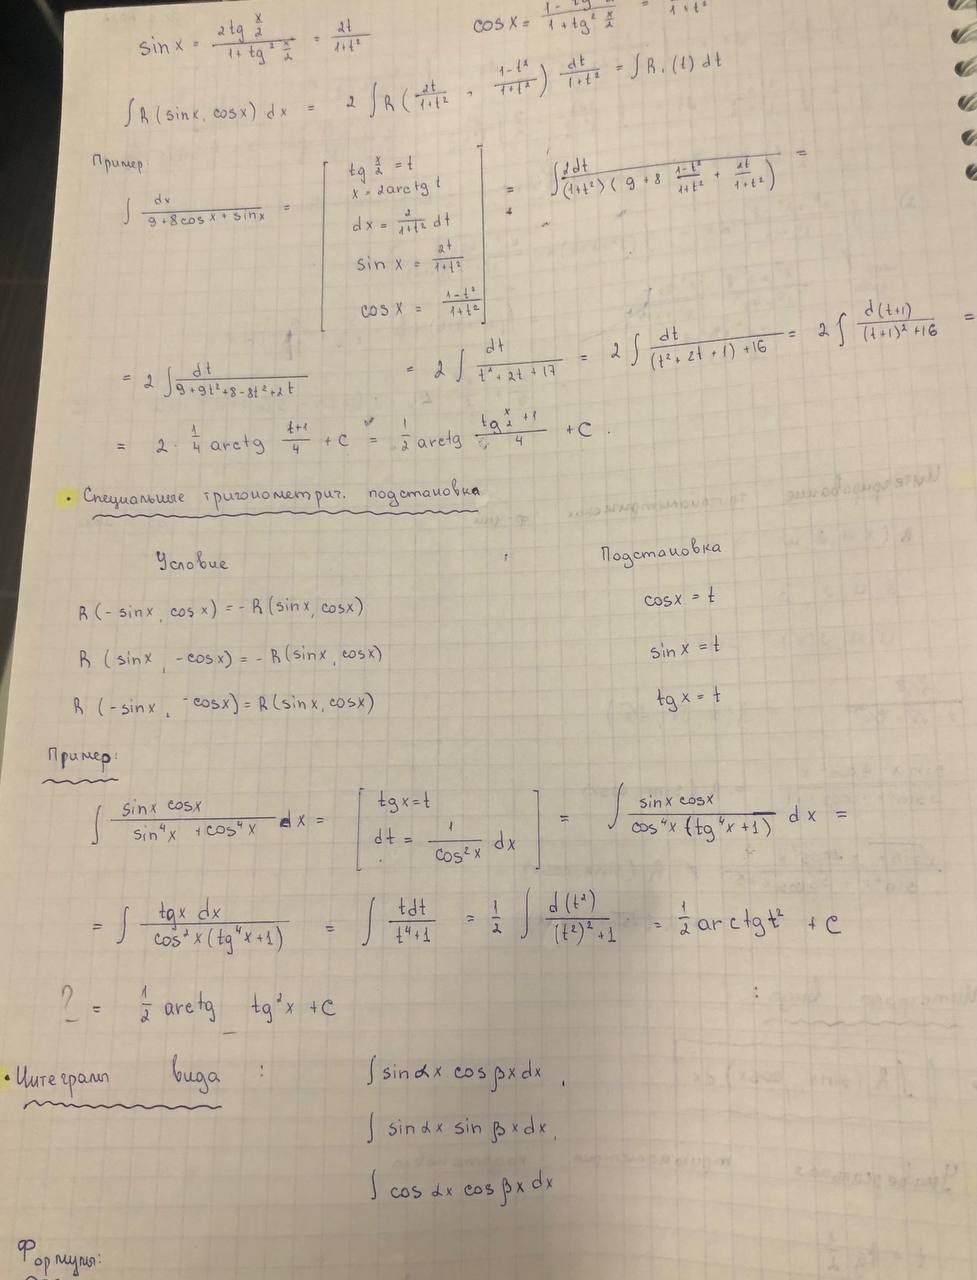 sin x = 2tg x/2 / 1 + tg² x/2 = 2t / 1+t²    cos x = 1 - tg² x/2 / 1 + tg² x/2 = / 1+t²
∫ R (sin x, cos x) dx = 2 ∫ R ( 2t / 1+t² , 1-t² / 1+t² ) dt / 1+t² = ∫ R₁ (t) dt
Пример
∫ dx / 9+8cos x + sin x = [ tg x/2 = t
x = 2arctg t
dx = 2 / 1+t² dt
sin x = 2t / 1+t²
cos x = 1-t² / 1+t² ] = ∫ 2dt / (1+t²) ( 9 + 8 1-t² / 1+t² + 2t / 1+t² ) =
= 2 ∫ dt / 9+9t²+8-8t²+2t = 2 ∫ dt / t²+2t+17 = 2 ∫ dt / (t²+2t+1)+16 = 2 ∫ d(t+1) / (t+1)²+16 =
= 2 · 1/4 arctg t+1 / 4 + C = 1/2 arctg tg x/2 +1 / 4 + C .
• Специальные тригонометрич. подстановка
Условие    Подстановка
R (- sin x, cos x) = - R (sin x, cos x)    cos x = t
R (sin x, -cos x) = - R (sin x, cos x)    sin x = t
R (-sin x, -cos x) = R (sin x, cos x)    tg x = t
Пример:
∫ sin x cos x / sin⁴x + cos⁴x dx = [ tg x = t
dt = 1 / cos²x dx ] = ∫ sin x cos x / cos⁴x (tg⁴x+1) dx =
= ∫ tg x dx / cos²x (tg⁴x+1) = ∫ tdt / t⁴+1 = 1/2 ∫ d(t²) / (t²)²+1 = 1/2 arctg t² + C
? = 1/2 arctg tg²x + C
• Интегралы вида : ∫ sin αx cos βx dx,
∫ sin αx sin βx dx,
∫ cos αx cos βx dx
Формулы: